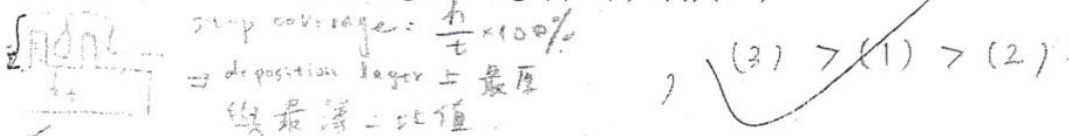 step coverage: h/t ×100%
⇒ deposition layer 上 最厚
與最薄之比值.
, (3) > (1) > (2).